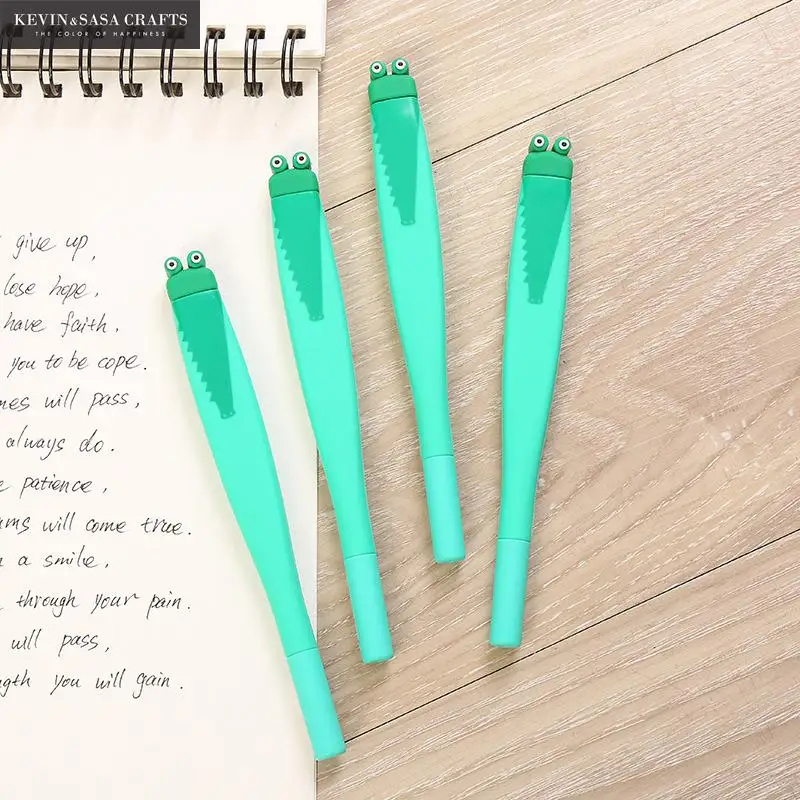 KEVIN&SASA CRAFTS
THE COLOR OF HAPPINESS
give up,
lose hope,
have faith,
you to be cope.
mes will pass,
always do.
patience,
ms will come true.
a smile,
through your pain.
will pass,
gth you will gain.